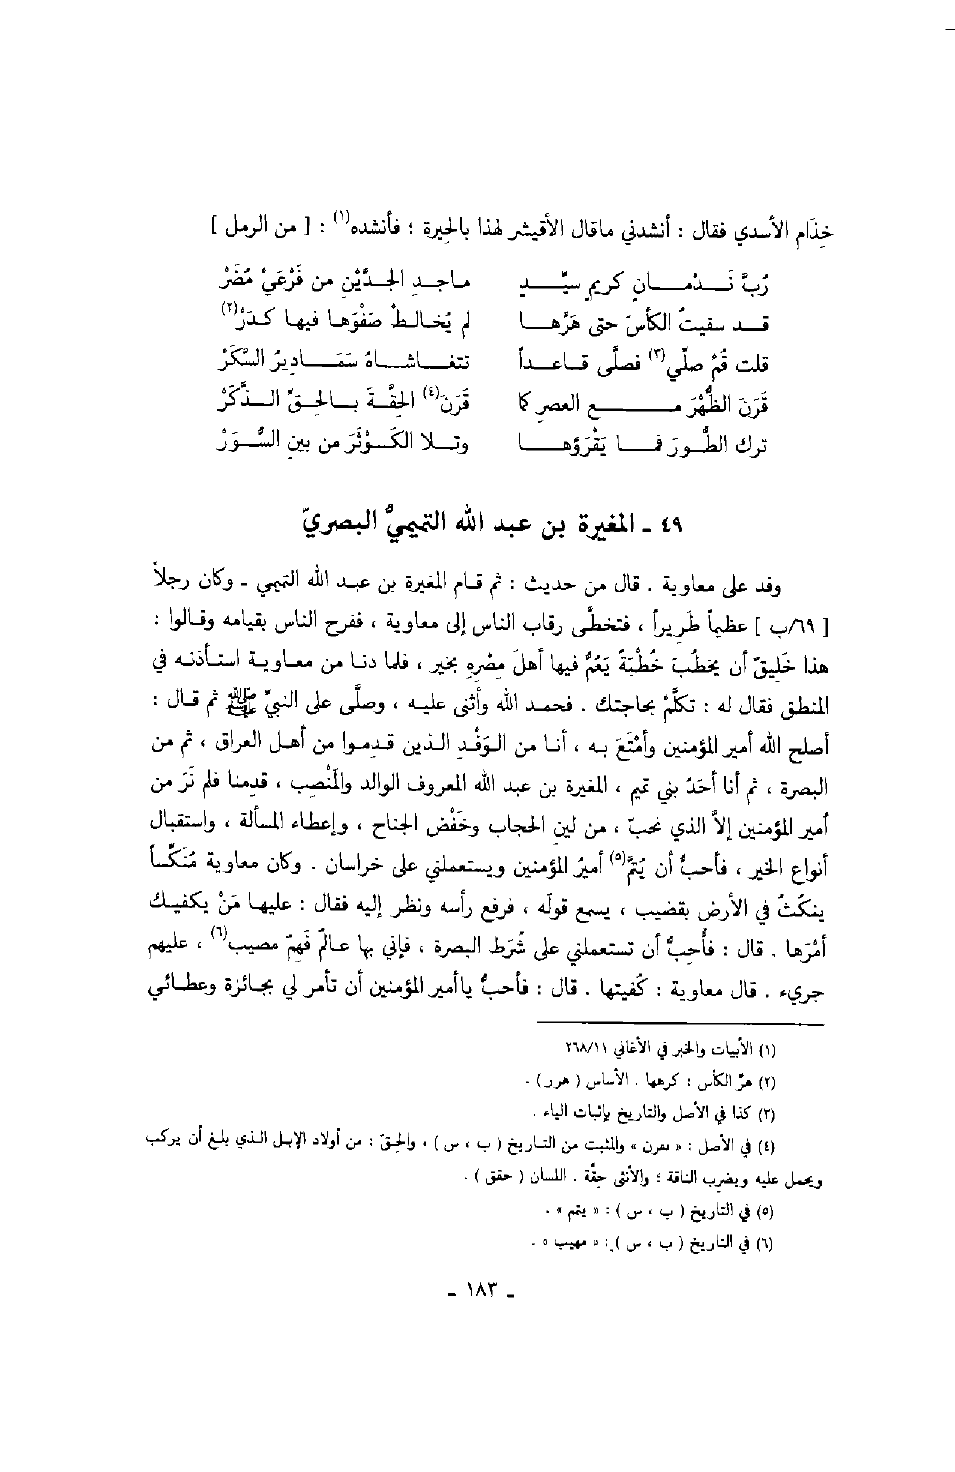 خِذَام الأسدي فقال : أنشدني ماقال الأقيشر لهذا بالحيرة ؛ فأنشده(١) : [ من الرمل ]
رُبَّ نَـدْمـانٍ كريمٍ سيِّـدٍ ماجـدِ الجـدَّيْنِ من فَرْعَيْ مُضَرْ
قـد سقيتُ الكأسَ حتى هَرَّهـا لم يُخـالـطْ صَفْوَهـا فيهـا كـدَرْ(٢)
قلت قُمْ صلّي(٣) فصلَّى قـاعـداً تتغـاشـاهُ سَمَـاديرُ السَّكَرْ
قَرَنَ الظُّهْرَ مـع العصرِ كما قَرَنَ(٤) الحِقَّـةَ بـالحِـقِّ الـذَّكَرْ
ترك الطُّـورَ فمـا يَقْرَؤهـا وتـلا الكَـوْثَرَ من بينِ السُّـوَرْ
٤٩ ـ المغيرة بن عبد الله التميميُّ البصريّ
وفد على معاوية . قال من حديث : ثم قـام المغيرة بن عبـد الله التميمي ـ وكان رجلاً
[ ٦٩/ب ] عظيماً طَريراً ، فتخطَّى رقاب الناس إلى معاوية ، ففرح الناس بقيامه وقـالوا :
هذا خَليقٌ أن يَخطُب خُطْبَةً يَعُمُّ فيها أهلَ مِصْرِهِ بخير ، فلما دنـا من معـاويـة استـأذنـه في
المنطق فقال له : تكلَّمْ بحاجتك . فحمد الله وأثنى عليـه ، وصلَّى على النبيِّ ﷺ ثم قـال :
أصلح الله أمير المؤمنين وأَمْتَعَ بـه ، أنـا من الـوَفْـد الـذين قـدمـوا من أهـل العراق ، ثم من
البصرة ، ثم أنا أحدُ بني تميم ، المغيرة بن عبد الله المعروف الوالد والمَنْصِب ، قدمنـا فلم نَرَ من
أمير المؤمنين إلاَّ الذي نحبّ ، من لينِ الحجاب وخَفْضِ الجناح ، وإعطـاء المسألـة ، واستقبـال
أنواع الخير ، فأحبُّ أن يُتمَّ(٥) أميرُ المؤمنين ويستعملني على خراسان . وكان معاوية مُنَكِّسـاً
ينكُتُ في الأرض بقضيب ، يسمع قولَه ، فرفع رأسه ونظر إليه فقال : عليهـا مَنْ يكفيـك
أمْرَها . قال : فأُحبُّ أن تستعملني على شُرَط البصرة ، فإني بها عـالمٌ فَهِمٌ مصيب(٦) ، عليهم
جريء . قال معاوية : كُفيتَها . قال : فأحبُّ ياأمير المؤمنين أن تأمر لي بجـائزة وعطـائي
(١) الأبيات والخبر في الأغاني ٢٦٨/١١
(٢) هرَّ الكأس : كرهها . الأساس ( هرر ) .
(٣) كذا في الأصل والتاريخ بإثبات الياء .
(٤) في الأصل : « يقرن » والمثبت من التـاريخ ( ب ، س ) ، والحِقّ : من أولاد الإبـل الـذي بلـغ أن يركب
ويحمل عليه ويضرب الناقة ؛ والأنثى حِقَّة . اللسان ( حقق ) .
(٥) في التاريخ ( ب ، س ) : « يتم » .
(٦) في التاريخ ( ب ، س ) : « مهيب » .
ـ ١٨٣ ـ